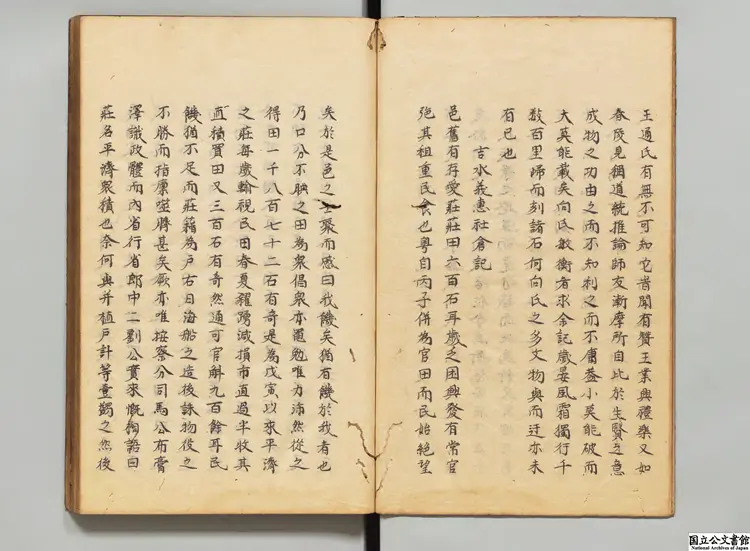 王通氏有無不可知它嘗聞有賛王業興禮樂又如
春陵見稱道統推論師友漸摩所自比於生賢之意
成物之功由之而不知利之而不庸葢小莫能破而
大莫能載矣向氏敏衡者求余記歲晏風霜獨行千
數百里歸而刻諸石何向氏之多文物與而迂亦未
有已也
吉水義惠社倉記
邑舊有存愛莊莊田六百石耳歲乏困興發有常官
弛其租重民食也粤自丙子併為官田而民始絶望
矣於是邑之士聚而感曰我饑矣猶有饑於我者也
乃口分不腆之田為衆倡衆亦黽勉唯力沛然從之
得田一千八百七十二石有奇是為戊寅以來平濟
之莊每歲輸視民田春夏糴踴減損市直過半收其
直積買田又三百石有奇然通可官斛九百餘耳民
饑猶不足而莊藉為戶右曰海船之造後詠物後之
不勝而指廩噬臍甚矣厥亦唯按察分司馬公布膏
澤識政體而内省行省郎中二劉公實來慨拘語曰
莊名平濟衆積也奈何與并植戶計等壹蠲之然後
国立公文書館
National Archives of Japan